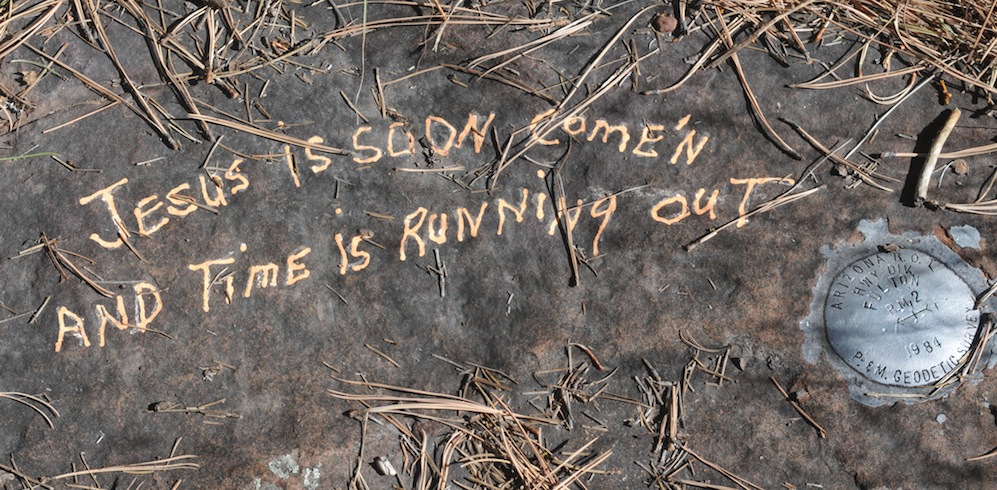 Jesus is SOON Come'N
AND Time is RUNNiNiNg OUT
ARIZONA D.O.T.
HWY DIV.
FULTON
R.M. 2
1984
P.&M. GEODETIC SURVEY